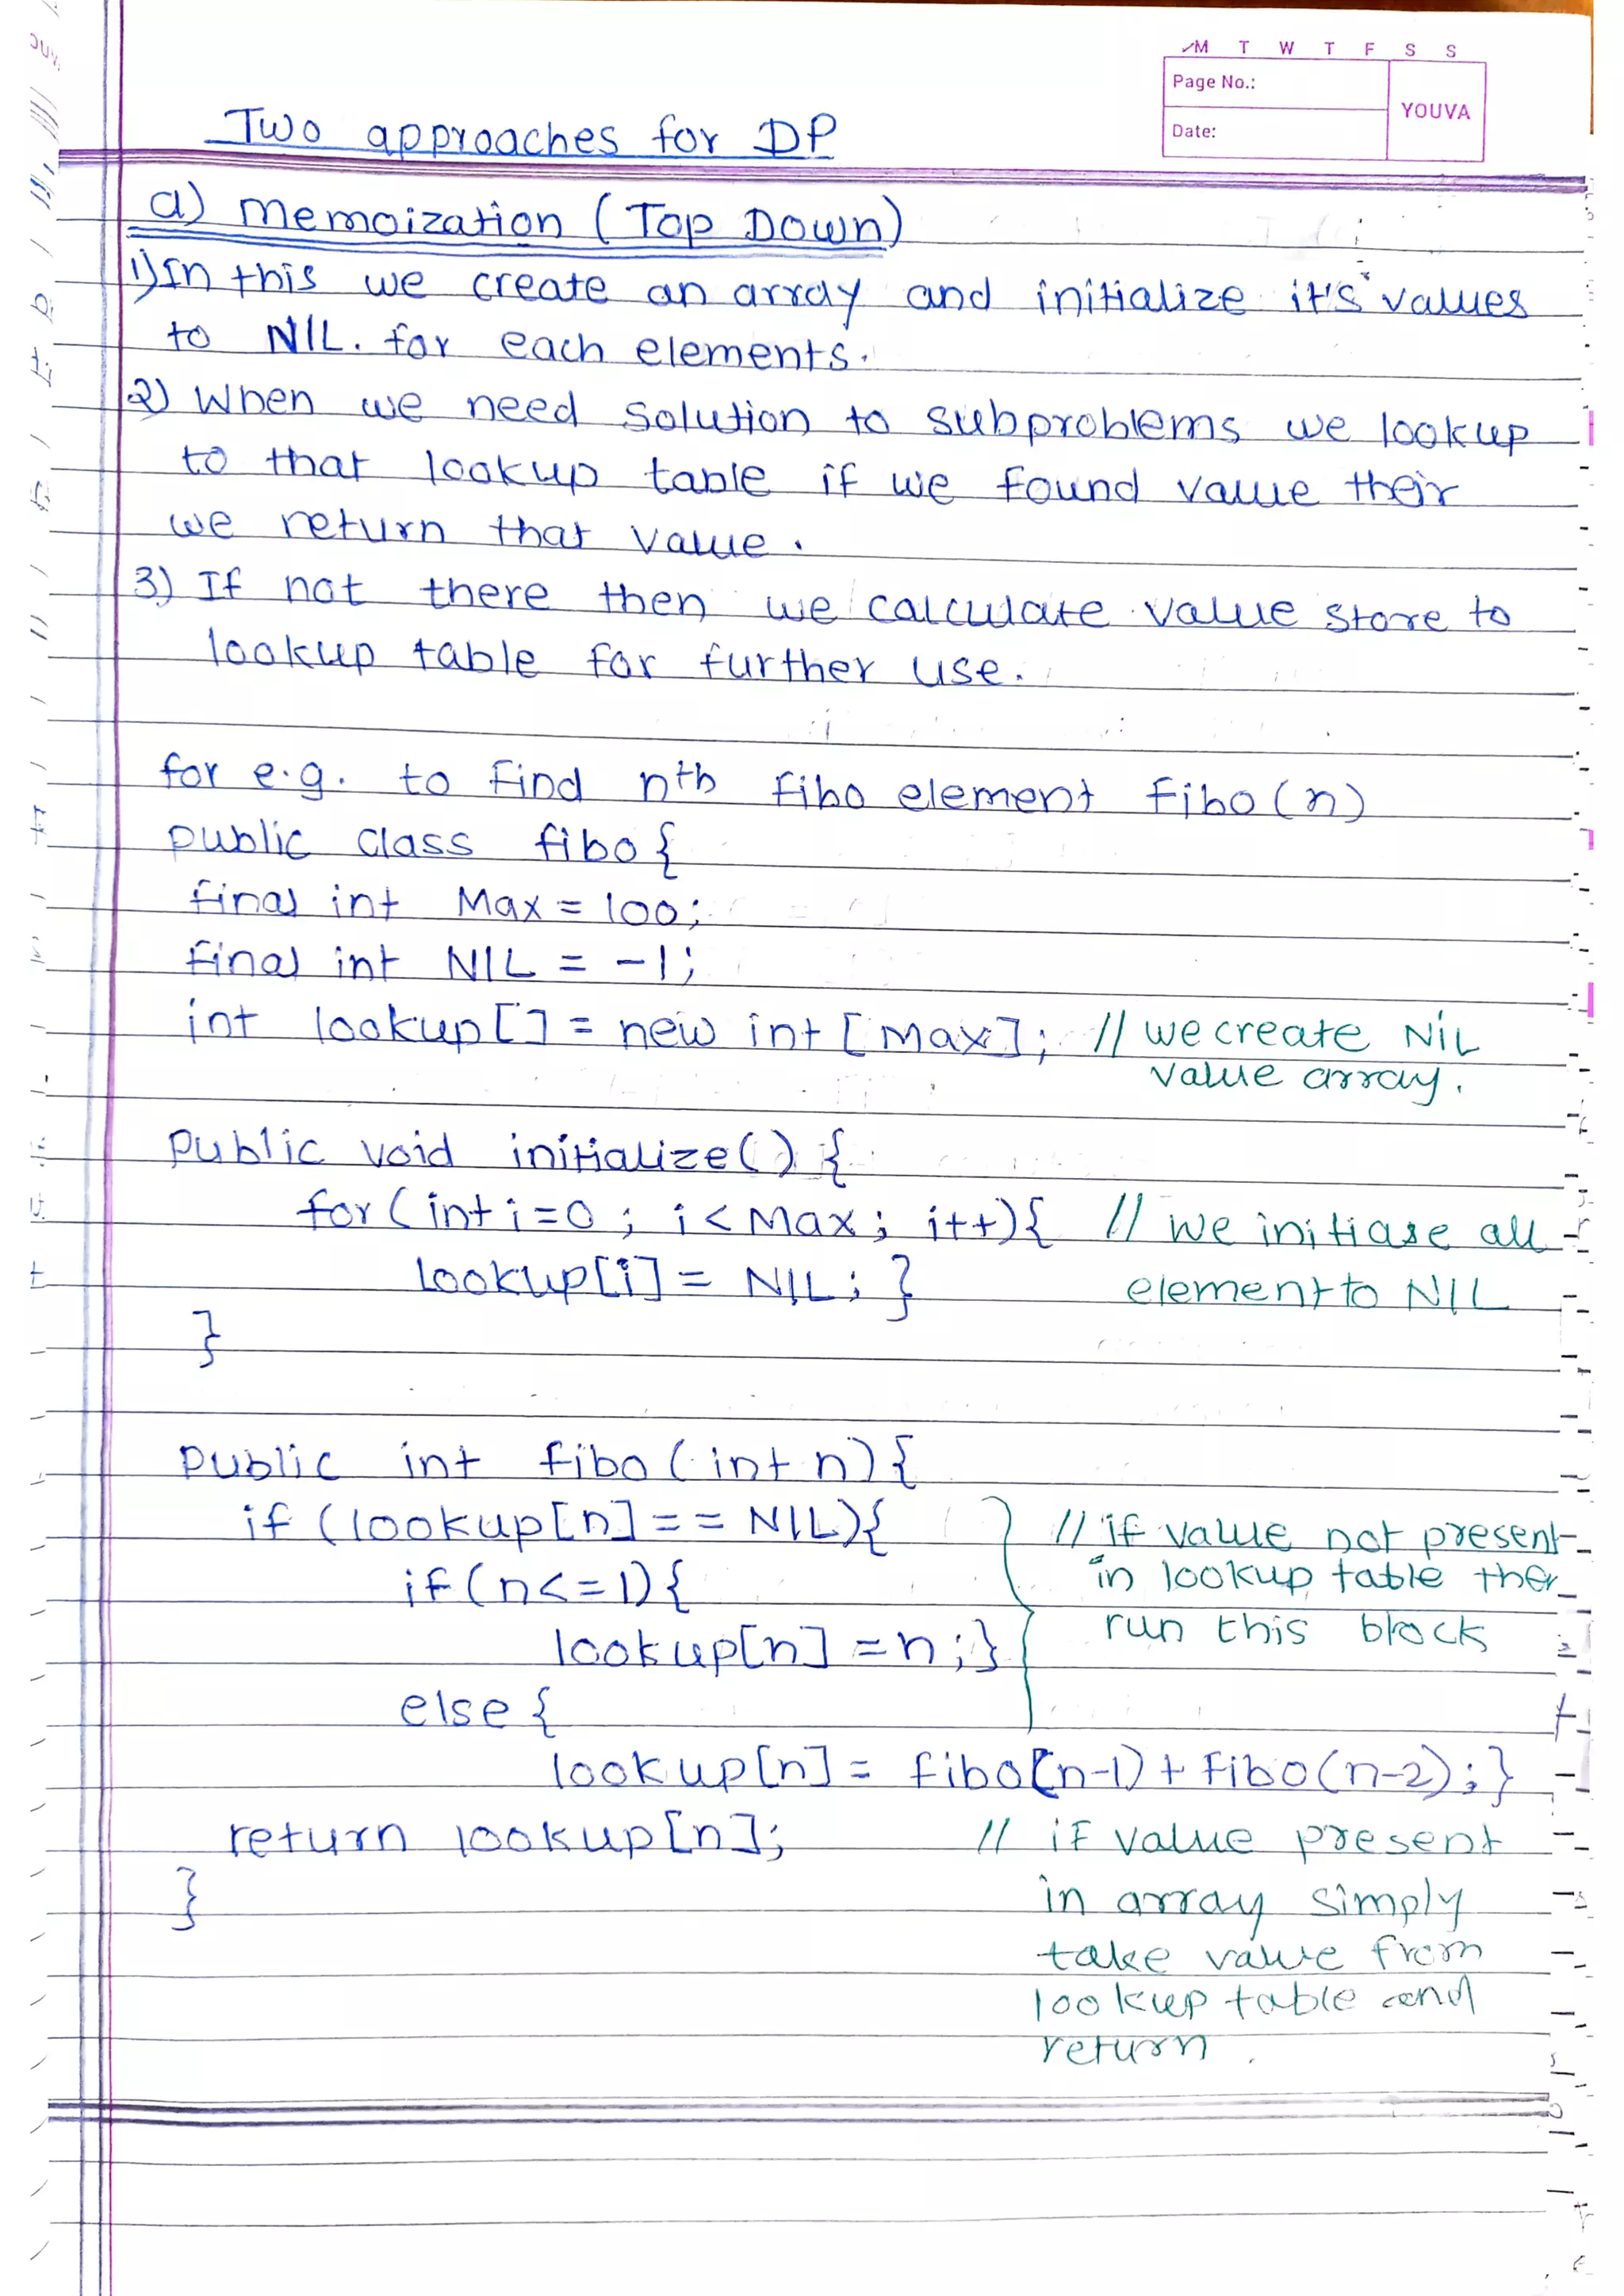 M T W T F S S
Page No.:
YOUVA
Date:
Two approaches for DP
a) Memoization (Top Down)
1) In this we create an array and initialize it's values
to NIL. for each elements.
2) When we need solution to subproblems we lookup
to that lookup table if we found value their
we return that value.
3) If not there then we calculate value store to
lookup table for further use.
for e.g. to find nth fibo element fibo(n)
public class fibo {
final int Max = 100;
final int NIL = -1;
int lookup[] = new int [Max]; // we create NIL
value array.
public void initialize() {
for (int i=0 ; i < Max ; i++){ // we initiase all
lookup[i] = NIL; } element to NIL
}
public int fibo (int n) {
if (lookup[n] == NIL){ // if value not present
if (n<=1){ in lookup table then
lookup[n] = n;} run this block
else {
lookup[n] = fibo(n-1) + fibo(n-2);}
return lookup[n]; // if value present
} in array simply
take value from
lookup table and
return.